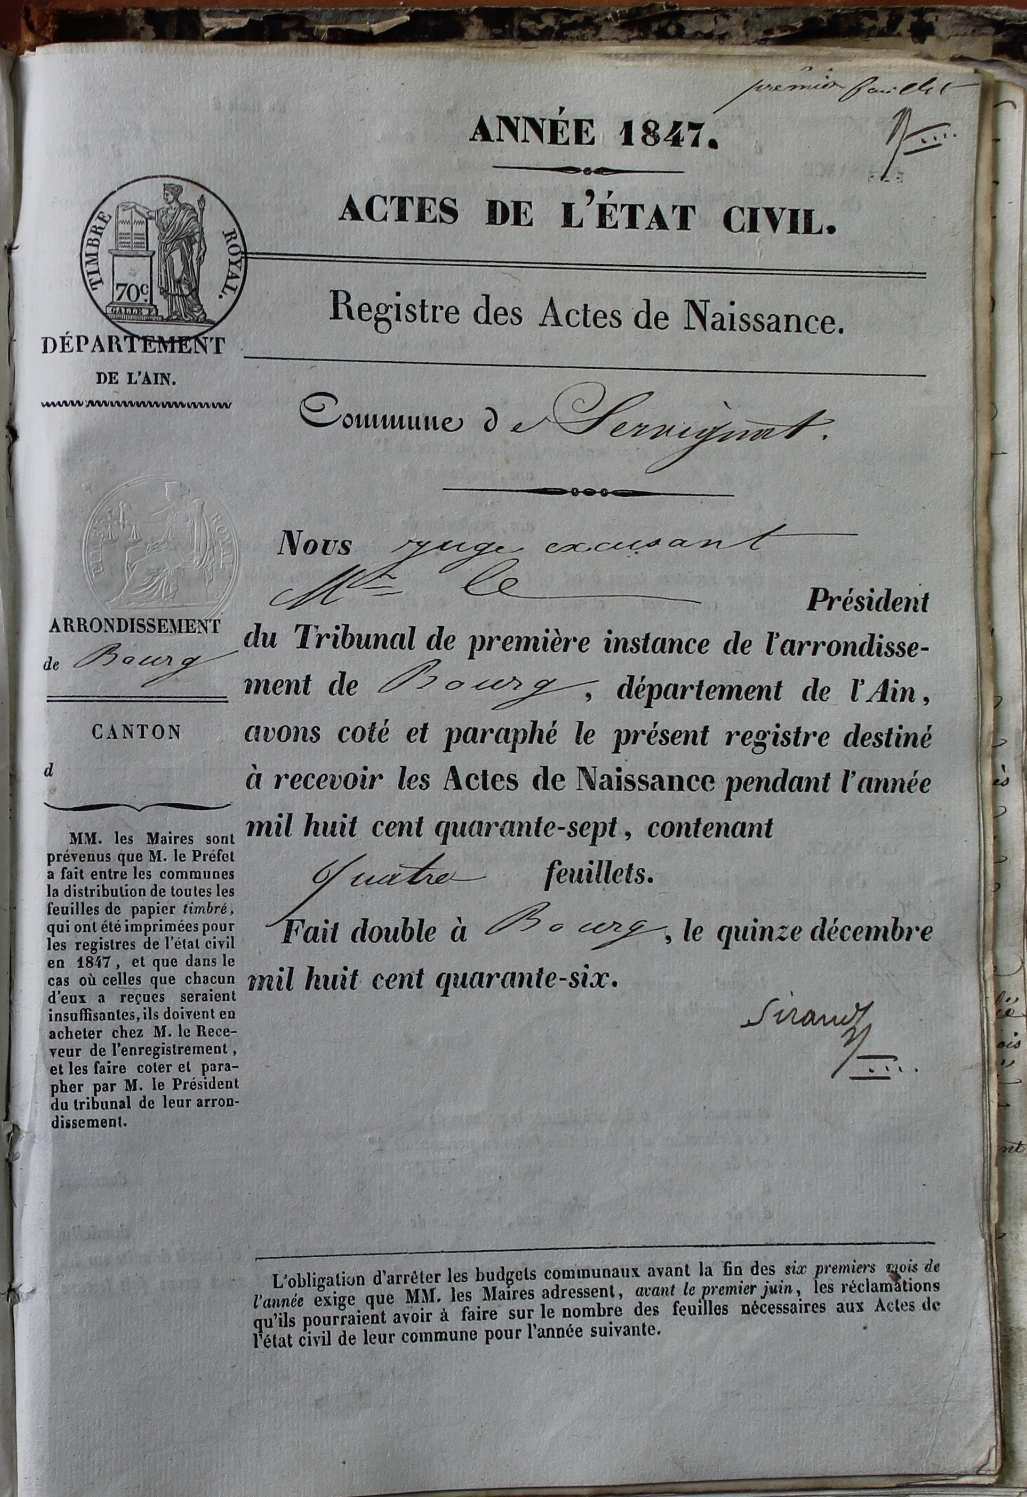 premier feuillet
ANNÉE 1847.
ACTES DE L'ÉTAT CIVIL.
TIMBRE ROYAL.
70c
GALLE F.
DÉPARTEMENT
DE L'AIN.
Registre des Actes de Naissance.
Commune de Servignat.
Nous juge excusant
Mr le Président
ARRONDISSEMENT
de Bourg
CANTON
d
du Tribunal de première instance de l'arrondisse-
ment de Bourg, département de l'Ain,
avons coté et paraphé le présent registre destiné
à recevoir les Actes de Naissance pendant l'année
mil huit cent quarante-sept, contenant
quatre feuillets.
Fait double à Bourg, le quinze décembre
mil huit cent quarante-six.
Sirand
MM. les Maires sont
prévenus que M. le Préfet
a fait entre les communes
la distribution de toutes les
feuilles de papier timbré,
qui ont été imprimées pour
les registres de l'état civil
en 1847, et que dans le
cas où celles que chacun
d'eux a reçues seraient
insuffisantes, ils doivent en
acheter chez M. le Rece-
veur de l'enregistrement,
et les faire coter et para-
pher par M. le Président
du tribunal de leur arron-
dissement.
L'obligation d'arrêter les budgets communaux avant la fin des six premiers mois de
l'année exige que MM. les Maires adressent, avant le premier juin, les réclamations
qu'ils pourraient avoir à faire sur le nombre des feuilles nécessaires aux Actes de
l'état civil de leur commune pour l'année suivante.